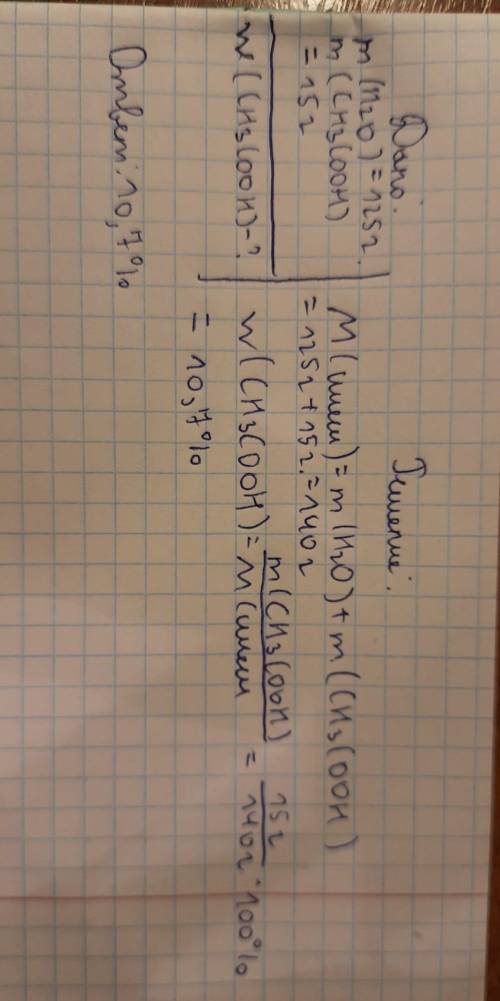 Дано:
m(H2O)=125г.
m(CH3COOH)
=15г
w(CH3COOH)-?
Решение:
M(смеси)=m(H2O)+m(CH3COOH)
=125г+15г.=140г
w(CH3COOH)= m(CH3COOH) / M(смеси = 15г / 140г · 100%
= 10,7%
Ответ: 10,7%